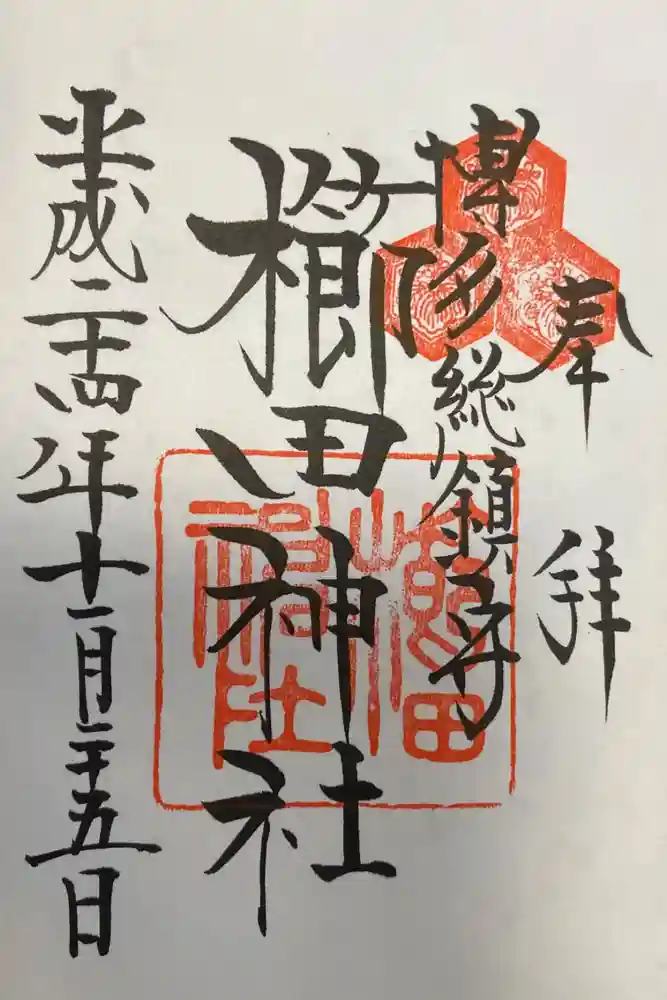 奉拝
博多総鎮守
櫛田神社
平成二十四年十一月二十五日
櫛田
神社